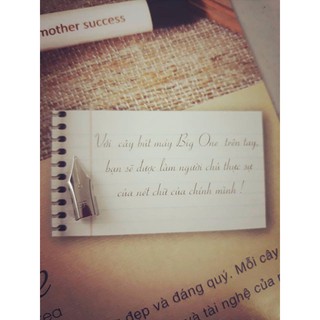 mother success
Với cây bút máy Big One trên tay,
bạn sẽ được làm người chủ thực sự
của nét chữ của chính mình !
đẹp và đáng quý. Mỗi cây
và tài nghệ của